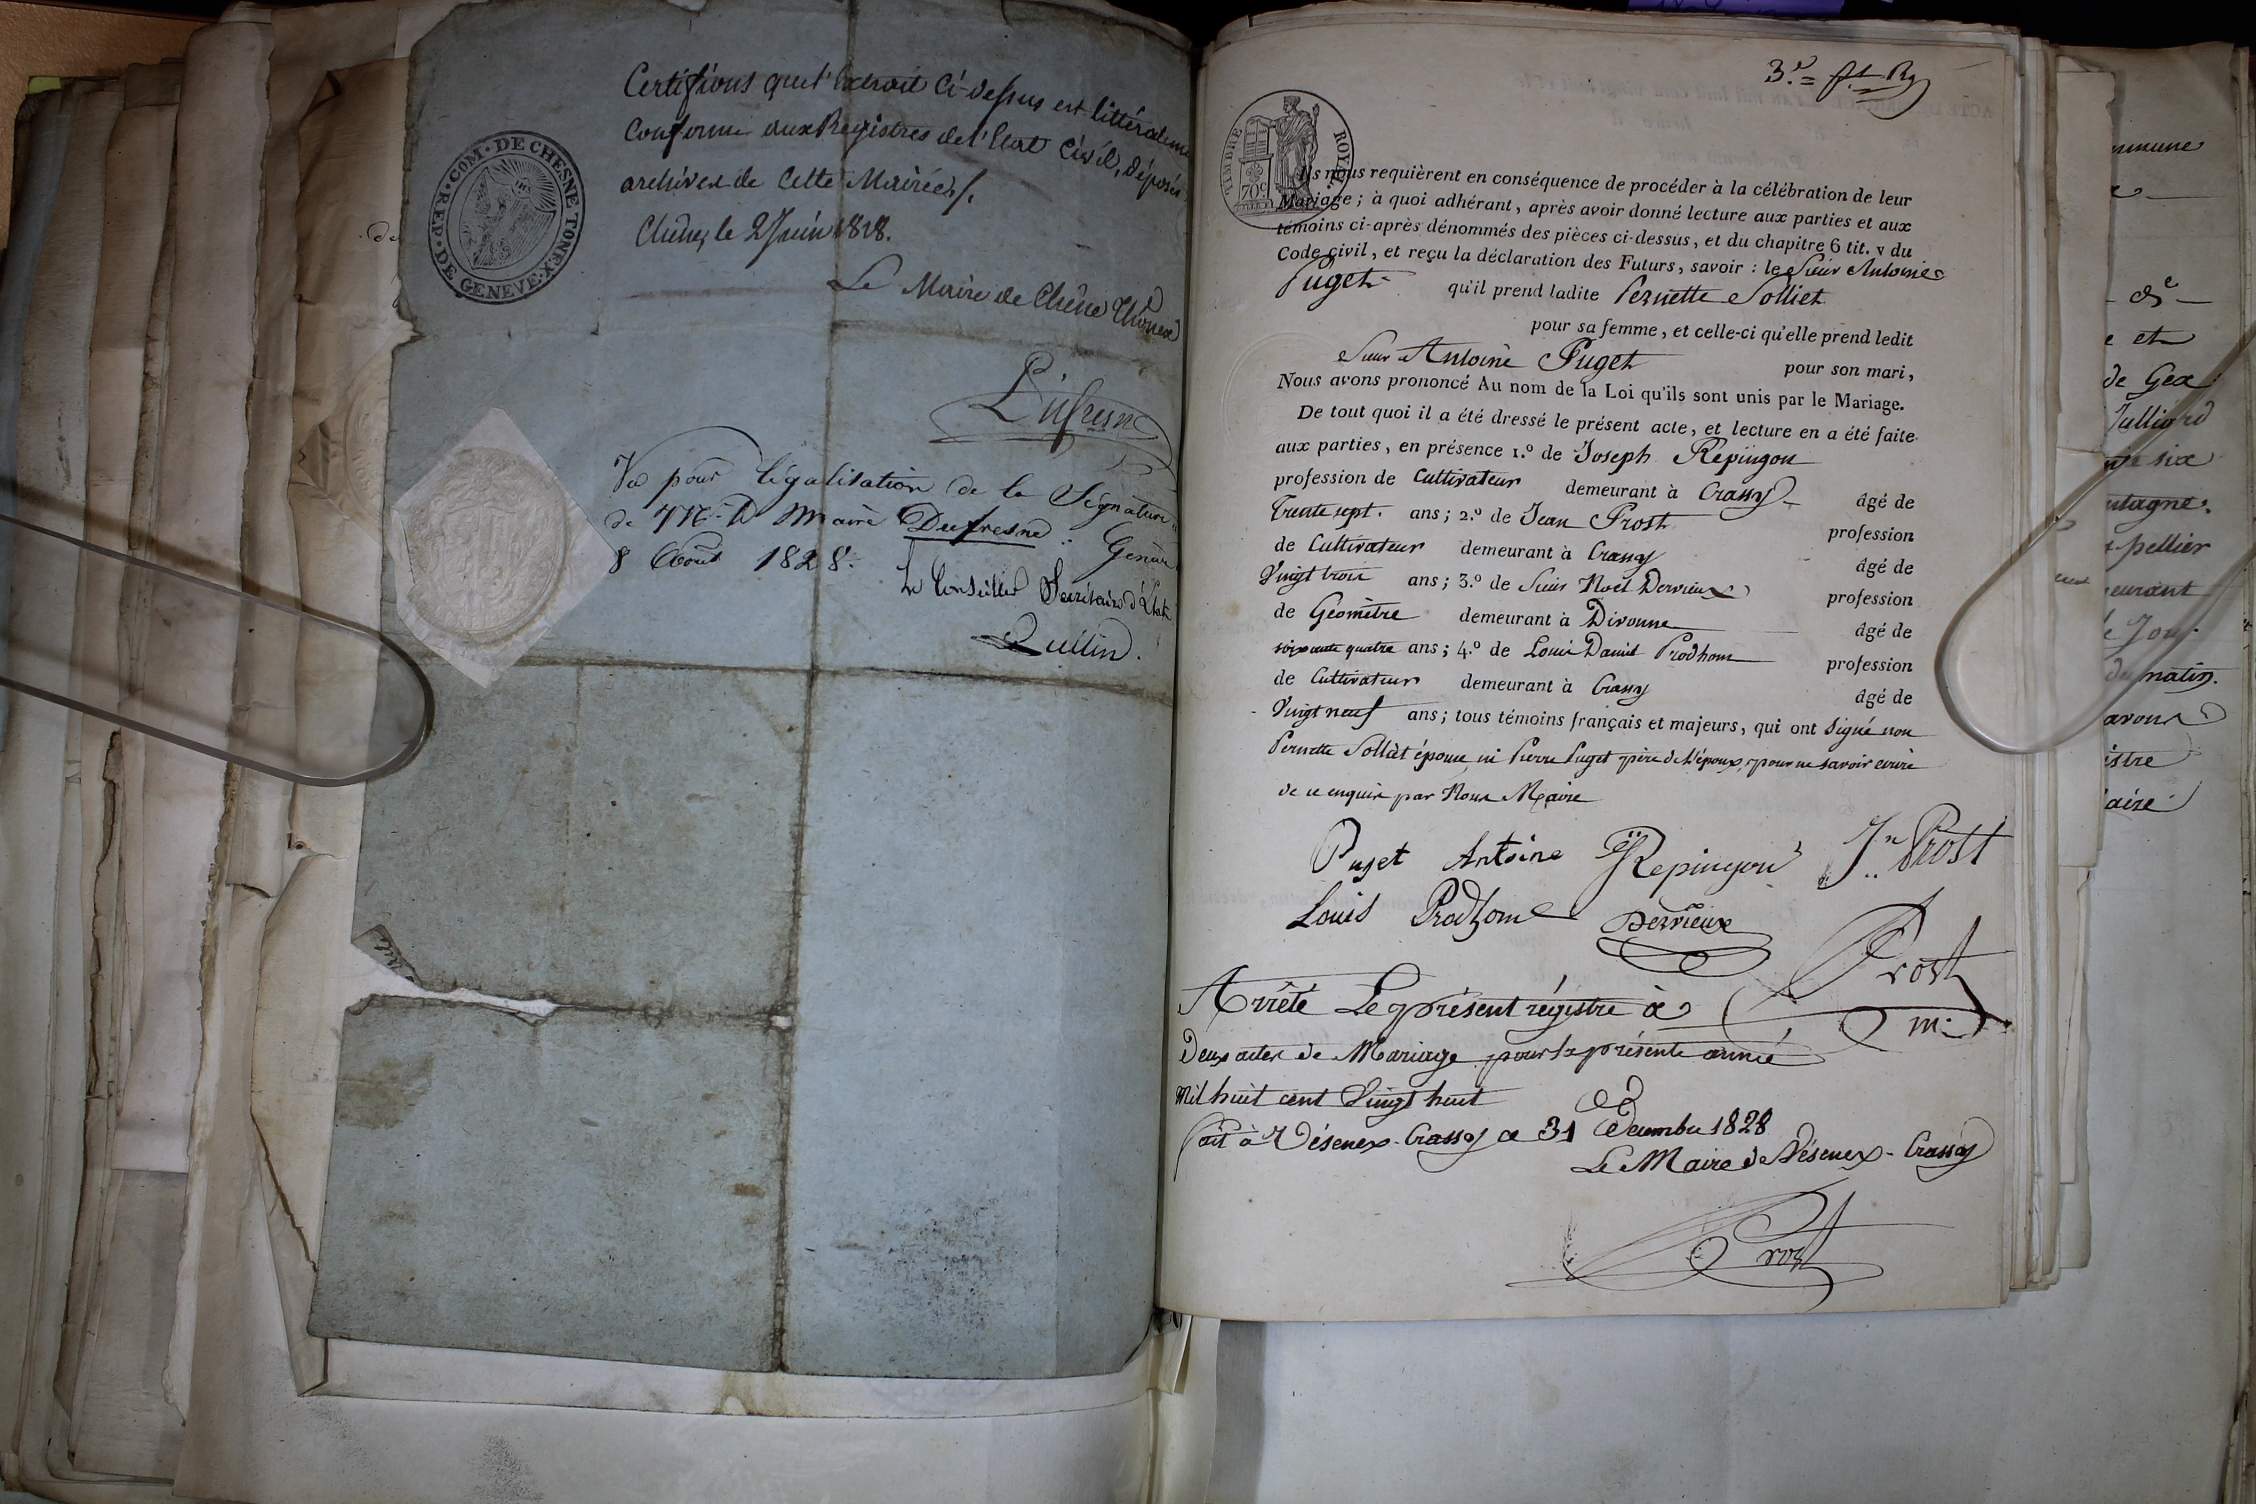 Certifions que l'Extrait ci-dessus est littéraleme
Conforme aux Registres de l'Etat Civil, déposés
archives de Cette Mairie./.
Chêne, le 2 Juin 1828.
Le Maire de Chêne Thonex
Dufresne
COM. DE CHESNE TONEX.
REP. DE GENEVE.
Vu pour légalisation de la Signature
de Mr le Maire Dufresne. Genève
8 Août 1828.
Le Conseiller Secrétaire d'Etat
Lullin.
3.e
TIMBRE ROYAL.
70 c
Ils nous requièrent en conséquence de procéder à la célébration de leur
Mariage; à quoi adhérant, après avoir donné lecture aux parties et aux
témoins ci-après dénommés des pièces ci-dessus, et du chapitre 6 tit. v du
Code civil, et reçu la déclaration des Futurs, savoir: le Sieur Antoine
Puget qu'il prend ladite Pernette Solliet
pour sa femme, et celle-ci qu'elle prend ledit
Sieur Antoine Puget pour son mari,
Nous avons prononcé Au nom de la Loi qu'ils sont unis par le Mariage.
De tout quoi il a été dressé le présent acte, et lecture en a été faite
aux parties, en présence 1.º de Joseph Repingon
profession de Cultivateur demeurant à Crassy âgé de
Trente sept. ans; 2.º de Jean Prost profession
de Cultivateur demeurant à Crassy âgé de
Vingt trois ans; 3.º de Sieur Noël Dervieux profession
de Géomètre demeurant à Divonne âgé de
soixante quatre ans; 4.º de Louis Daniel Prodhom profession
de Cultivateur demeurant à Crassy âgé de
Vingt neuf ans; tous témoins français et majeurs, qui ont signé non
Pernette Solliet épouse ni Pierre Puget père de l'époux, pour ne savoir écrire
de ce enquis par Nous Maire
Puget Antoine Repingon Jn Prost
Louis Prodhom Dervieux
Prost
m.
Arrêté Le présent régistre à
Deux actes de Mariage pour la présente année
Mil huit cent Vingt huit
fait à Vésenex-Crassy ce 31 Décembre 1828
Le Maire de Vésenex-Crassy
Prost
mmune
e et
de Gex
Julliard
six
ntagne
pellier
eurant
matin.
avons
istre
aire